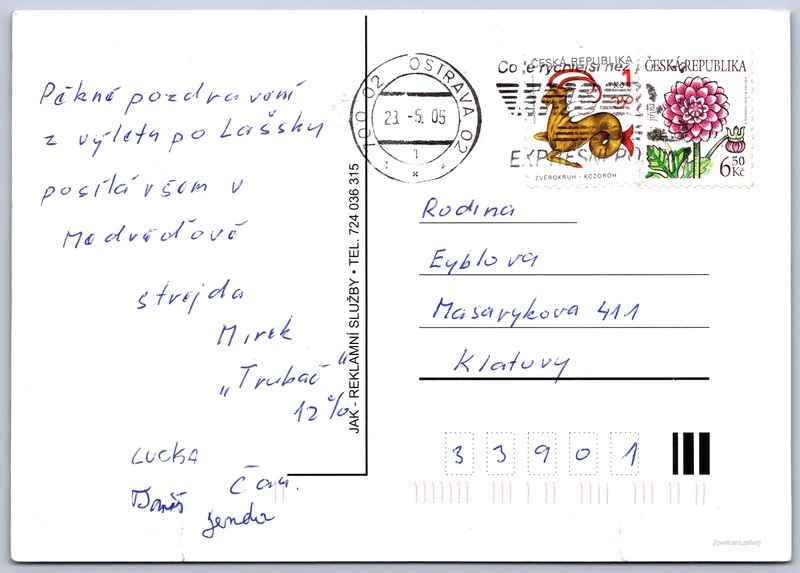 Pěkné pozdravení
z výletu po Lašsku
posílá všem v
Medvěďově
strejda
Mirek
„Trubač“
12%
LUCKA
Tomáš
Jenda
JAK - REKLAMNÍ SLUŽBY • TEL. 724 036 315
700 02 OSTRAVA 02
23. -5. 05
1
Co je rychlejší než
EXPRESNÍ
ČESKÁ REPUBLIKA
Kč 1
ZVĚROKRUH - KOZOROH
ČESKÁ REPUBLIKA
6,50 Kč
Rodina
Eyblova
Masarykova 411
Klatovy
33901